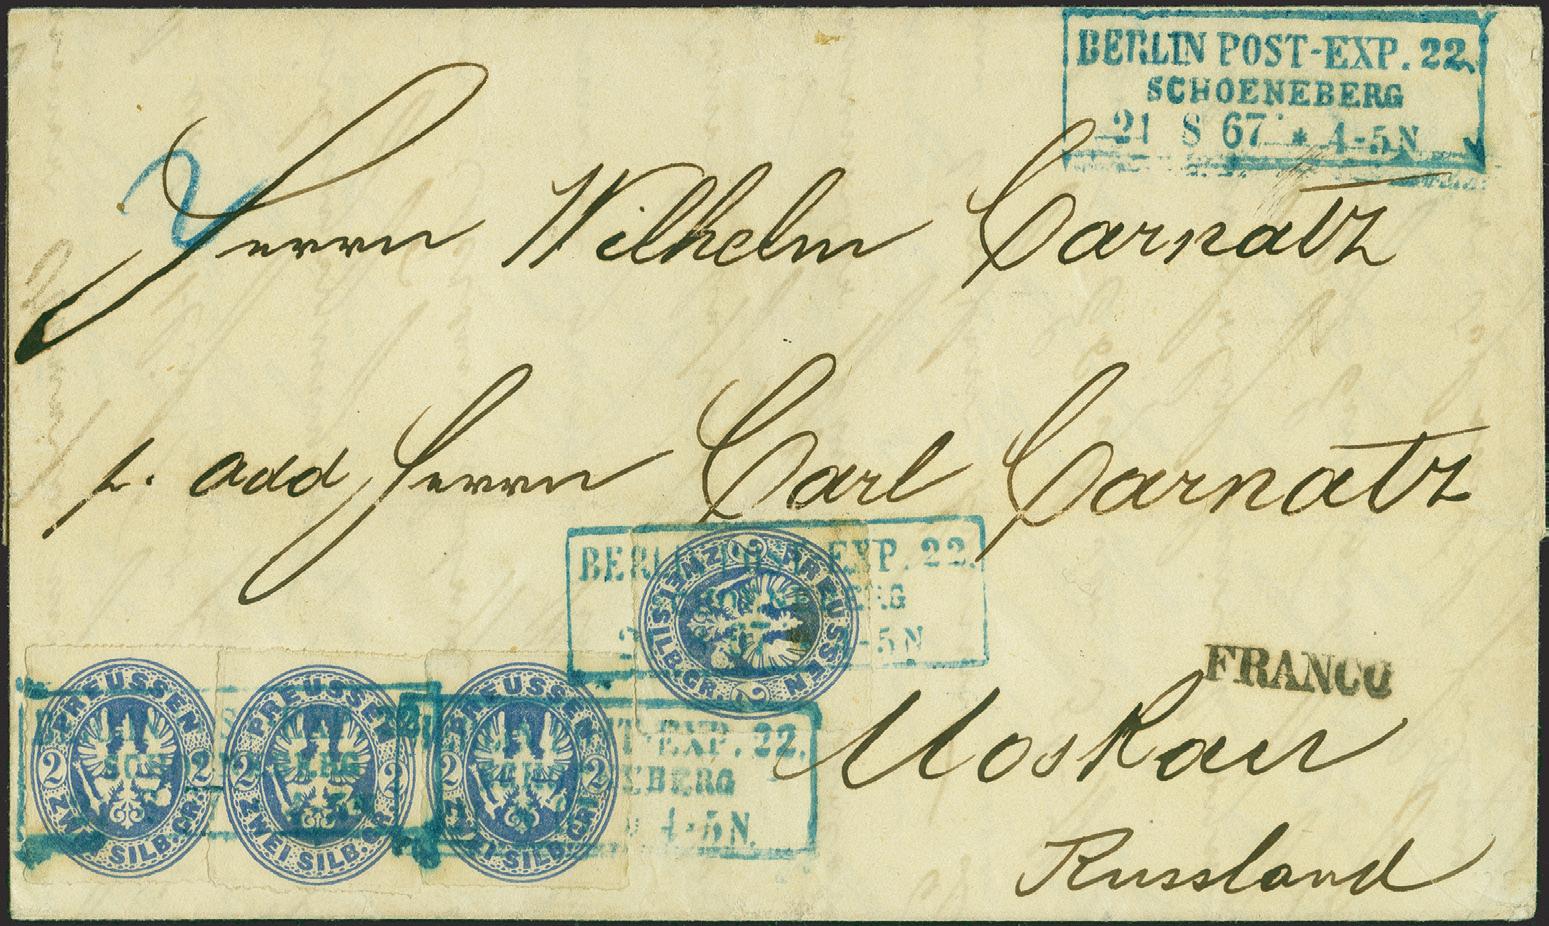 BERLIN POST-EXP. 22.
SCHOENEBERG
21 8 67 * 4-5N
2
Herrn Wilhelm Carnatz
p. add Herrn Carl Carnatz
BERLIN POST-EXP. 22.
-5N
PREUSSEN ZWEI SILB.GR. 2
FRANCO
Moskau
Russland
PREUSSEN 2 ZWEI SILB.GR. 2
PREUSSEN 2 ZWEI SILB.GR. 2
PREUSSEN 2 ZWEI SILB.GR. 2
22.
T-EXP. 22.
EBERG
4-5N.